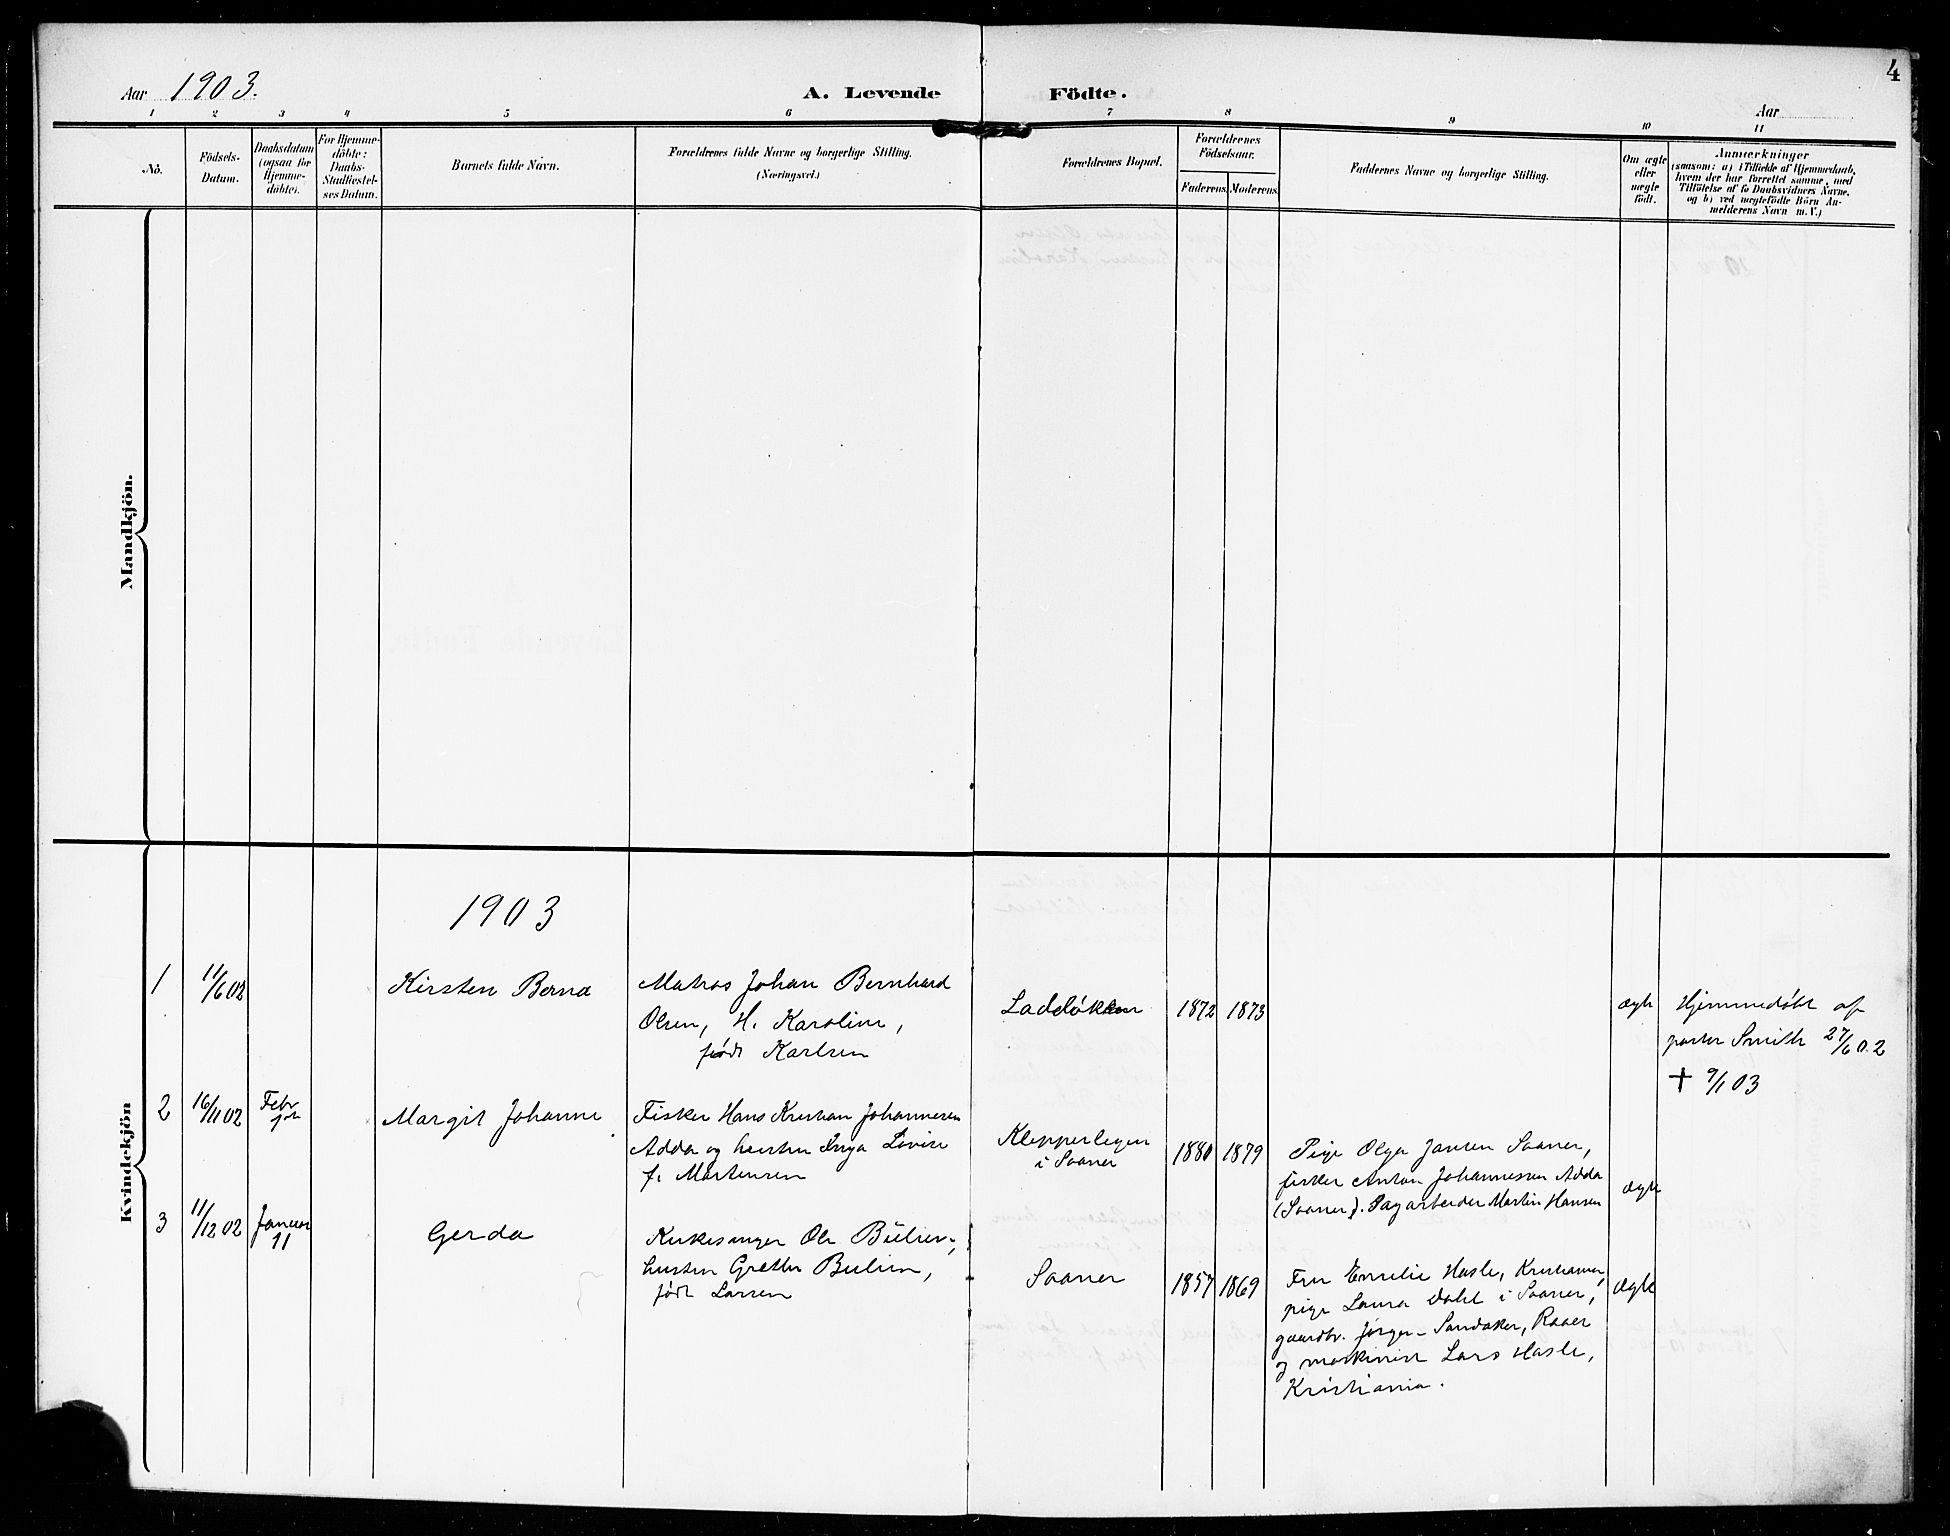 4
Aar 1903.
A. Levende Födte.
Aar
1 2 3 4 5 6 7 8 9 10 11
No.
Födsels-
Datum.
Daabsdatum
(ogsaa for
Hjemme-
döbte).
For Hjemme-
döbte:
Daabs-
Stadfæstel-
ses Datum.
Barnets fulde Navn.
Forældrenes fulde Navne og borgerlige Stilling.
(Næringsvei.)
Forældrenes Bopæl.
Forældrenes
Födselsaar.
Faderens. Moderens.
Faddernes Navne og borgerlige Stilling.
Om ægte
eller
uægte
födt.
Anmærkninger
(saasom: a) i Tilfælde af Hjemmedaab,
hvem der har forrettet samme, med
Tilföielse af to Daabsvidners Navne,
og b) ved uægtefödte Börn An-
melderens Navn m. V.)
Mandkjön.
Kvindekjön
1903
1
11/6 02
Kirsten Berna
Matros Johan Bernhard
Olsen, H. Karoline,
født Karlsen
Laddløkken
1872 1873
ægte
Hjemmedøbt af
pastor Smith 27/6 02
† 9/1 03
2
16/11 02
Febr
Margit Johanne
Fisker Hans Kristian Johannesen
Adda og hustru Inga Lovise
f. Martensen
Klepperlegen
i Saaner
1880 1879
Pige Olga Jansen Saaner,
fisker Anton Johannessen Adda
(Saaner). Sagarbeider Martin Hansen
ægte
3
11/12 02
Januar
11
Gerda
Kirkesanger Ole Bulien,
hustru Grethe Bulien,
født Larsen
Saaner
1857 1869
Fru Emilie Hasle, Kristiania,
pige Laura Dahl i Saaner,
gaardbr. Jørgen Sandaker, Raaer
og maskinist Lars Hasle,
Kristiania.
ægte